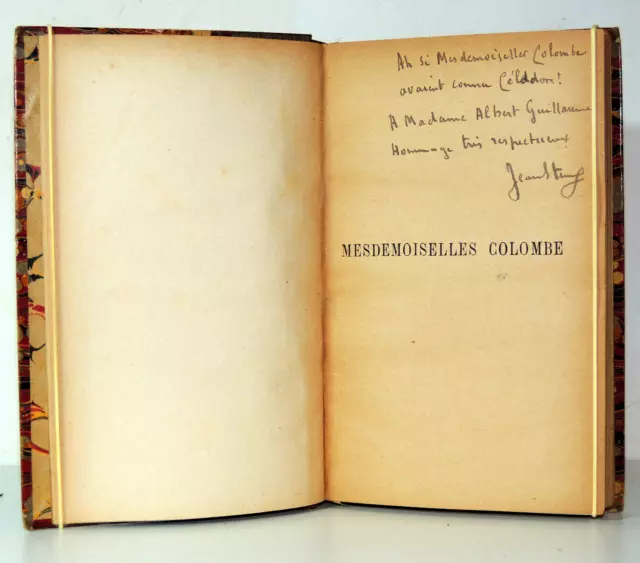 Ah si Mesdemoiselles Colombe
avaient connu
A Madame Albert Guillaume
Hommage très respectueux
MESDEMOISELLES COLOMBE